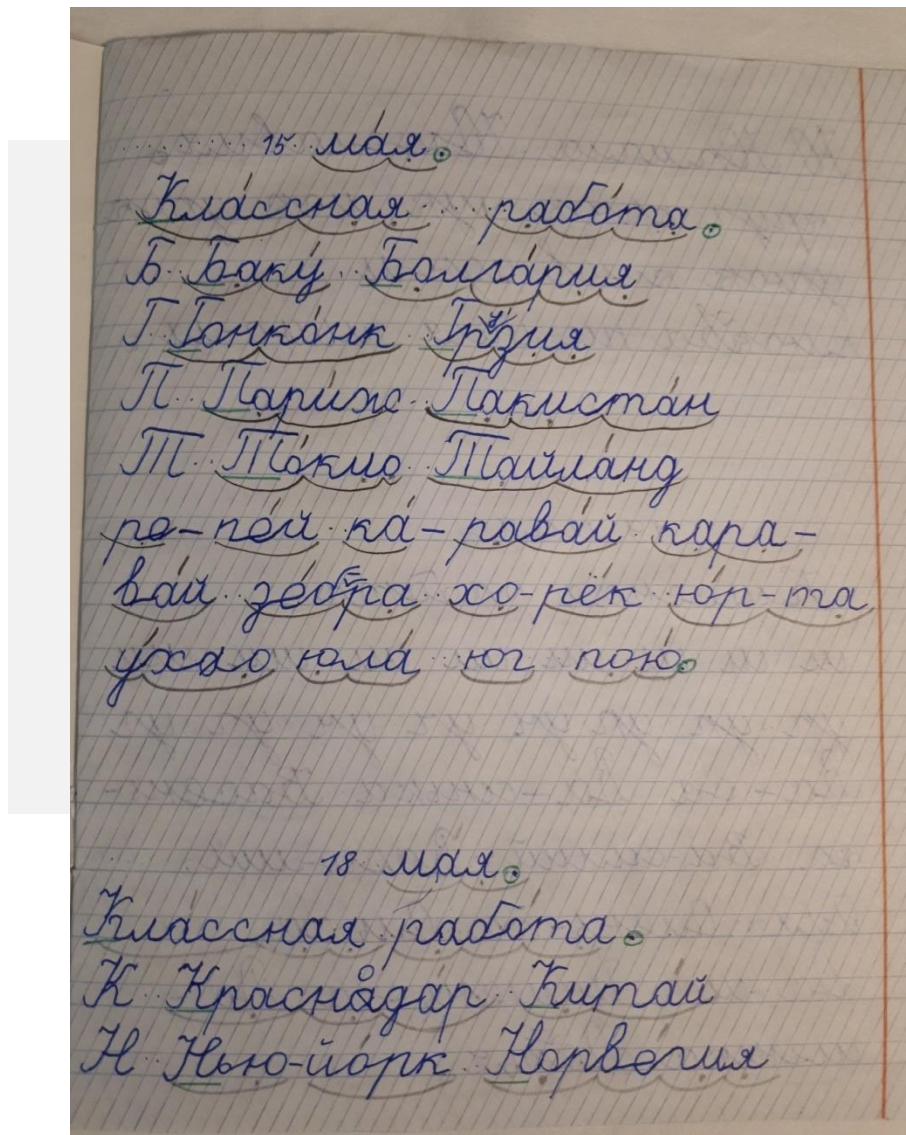 15 мая.
Классная работа.
Б Баку Болгария
Г Гонконк Грузия
П Париж Пакистан
Т Токио Тайланд
ре-пей ка-равай кара-
вай зебра хо-рёк юр-та
ухаю юла юг пою.
18 мая.
Классная работа.
К Краснодар Китай
Н Нью-йорк Норвегия